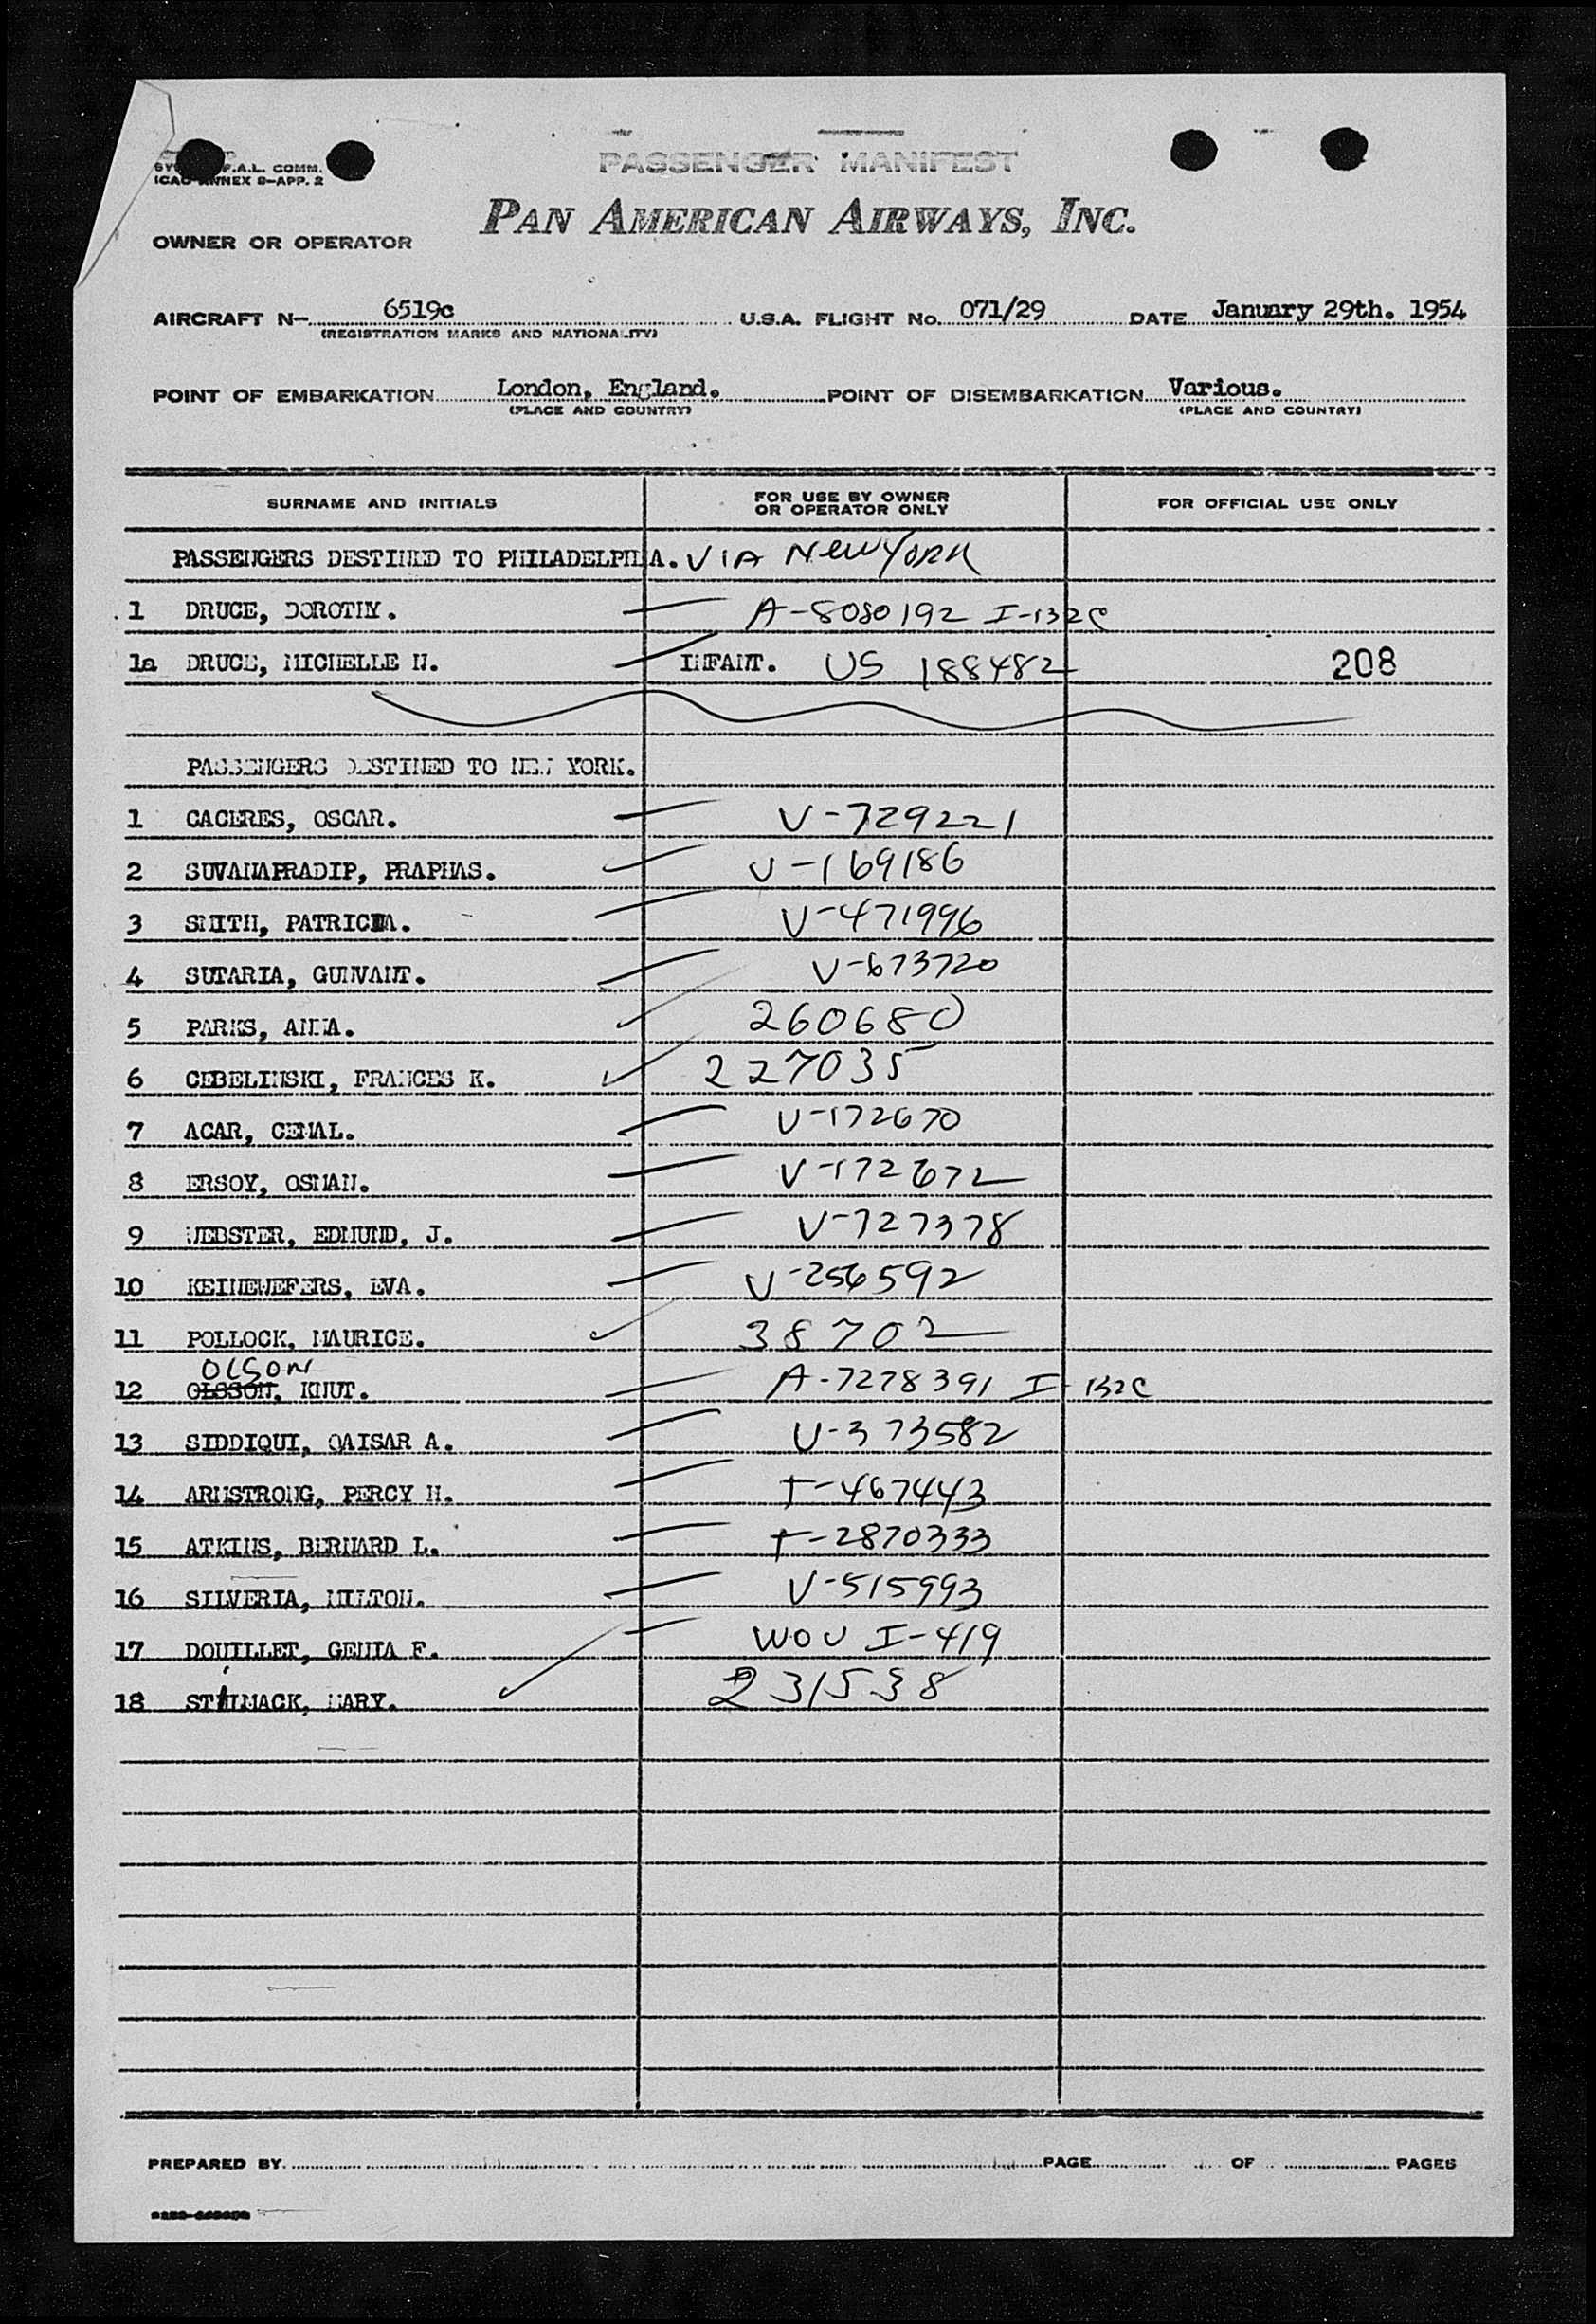 F.A.L. COMM.
ICAO ANNEX 9-APP. 2
PASSENGER MANIFEST
PAN AMERICAN AIRWAYS, INC.
OWNER OR OPERATOR
AIRCRAFT N- 6519c U.S.A. FLIGHT No. 071/29 DATE January 29th. 1954
(REGISTRATION MARKS AND NATIONALITY)
POINT OF EMBARKATION London, England. POINT OF DISEMBARKATION Various.
(PLACE AND COUNTRY) (PLACE AND COUNTRY)
SURNAME AND INITIALS FOR USE BY OWNER OR OPERATOR ONLY FOR OFFICIAL USE ONLY
PASSENGERS DESTINED TO PHILADELPHIA. VIA NEW YORK
1 DRUCE, DOROTHY. A-8080192 I-132C
1a DRUCE, MICHELLE N. INFANT. US 188482 208
PASSENGERS DESTINED TO NEW YORK.
1 CACERES, OSCAR. V-729221
2 SUVANAPRADIP, PRAPHAS. V-169186
3 SMITH, PATRICIA. V-471996
4 SUTARIA, GUNVANT. V-673720
5 PARKS, ANNA. 260680
6 CEBELINSKI, FRANCES K. 227035
7 ACAR, CEMAL. V-172670
8 ERSOY, OSMAN. V-172672
9 WEBSTER, EDMUND, J. V-727378
10 KEINEWEFERS, EVA. V-256592
11 POLLOCK, MAURICE. 38702
OLSON
12 OLSSON, KNUT. A-7278391 I-132C
13 SIDDIQUI, QAISAR A. V-373582
14 ARMSTRONG, PERCY H. T-467443
15 ATKINS, BERNARD L. T-2870333
16 SILVERIA, MILTON. V-515993
17 DOUILLET, GENIA F. WOV I-419
18 STILMACK, MARY. 231538
PREPARED BY PAGE OF PAGES